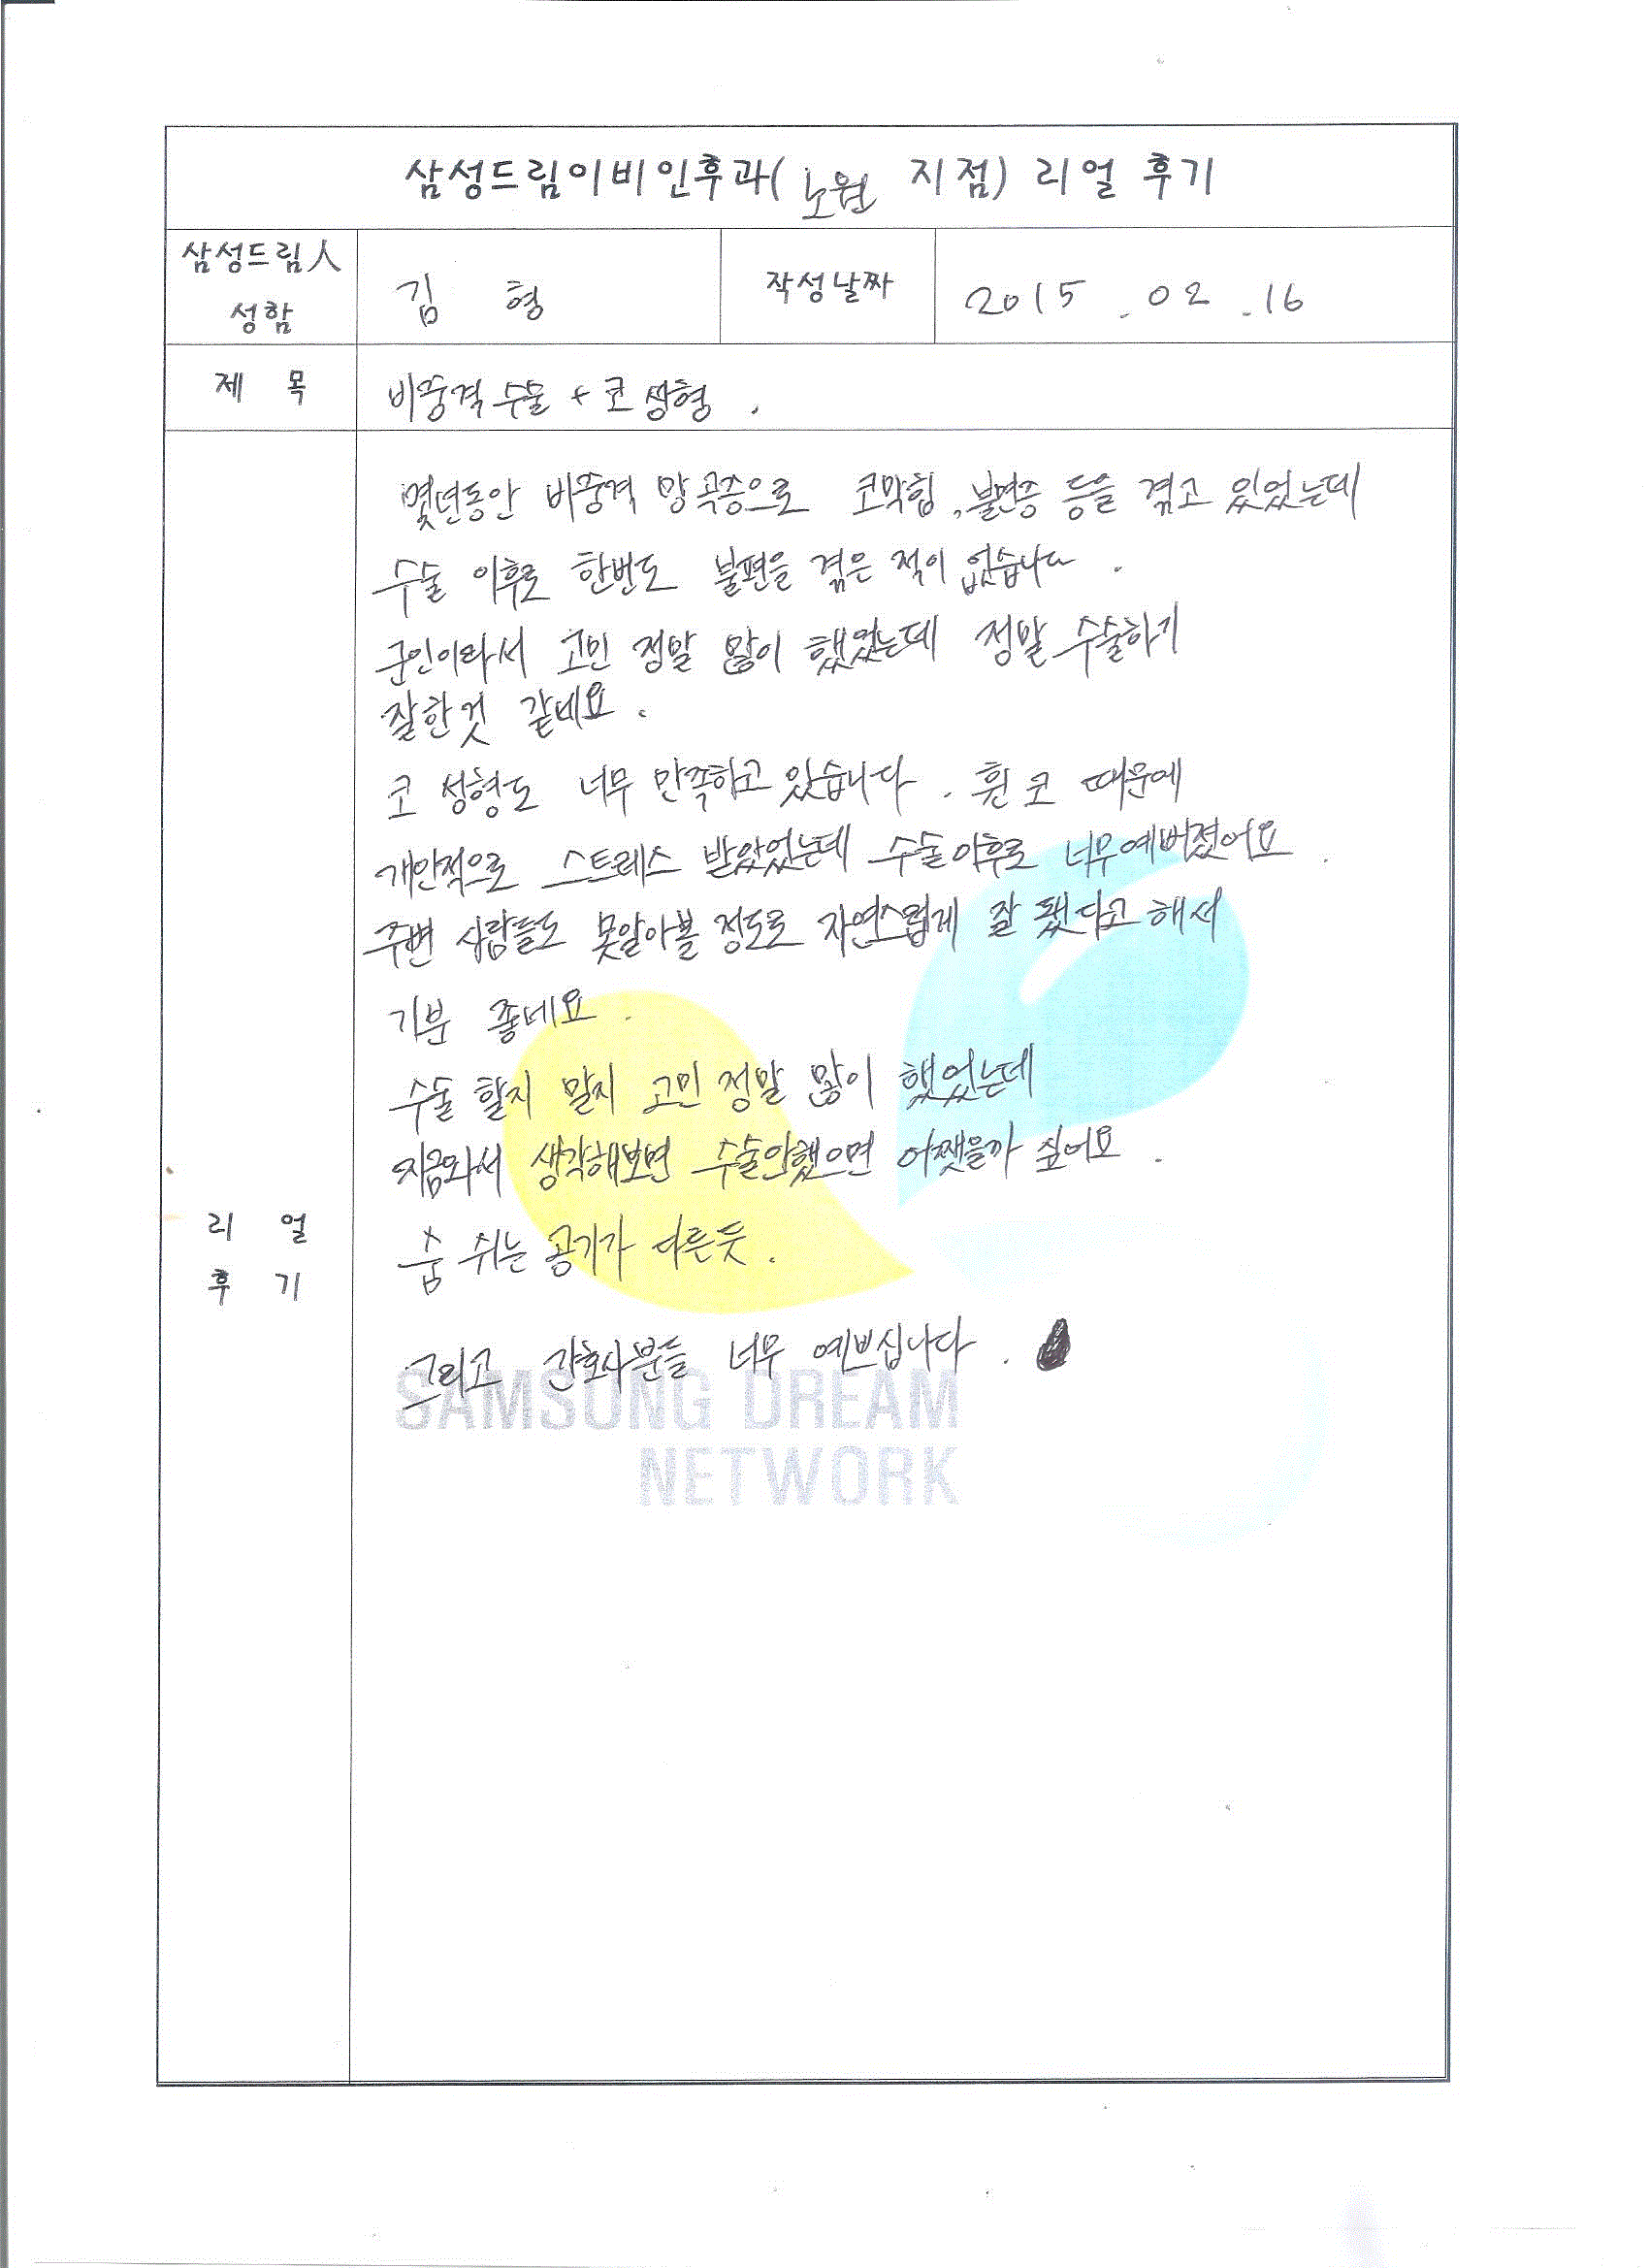 삼성드림이비인후과( 노원 지점) 리얼 후기
삼성드림人
성함
김 형
작성날짜
2015 . 02 . 16
제 목
비중격수술 + 코성형 .
몇년동안 비중격 만곡증으로 코막힘, 불면증 등을 겪고 있었는데
수술 이후로 한번도 불편을 겪은 적이 없습니다 .
군인이라서 고민 정말 많이 했었는데 정말 수술하기
잘한것 같네요 .
코 성형도 너무 만족하고 있습니다 . 휜 코 때문에
개인적으로 스트레스 받았었는데 수술이후로 너무예뻐졌어요 .
주변 사람들도 못알아볼 정도로 자연스럽게 잘 됐다고 해서
기분 좋네요 .
수술 할지 말지 고민 정말 많이 했었는데
지금와서 생각해보면 수술안했으면 어쨋을까 싶어요 .
숨 쉬는 공기가 다른듯 .
그리고 간호사분들 너무 예쁘십니다 .
리 얼
후 기
SAMSUNG DREAM
NETWORK